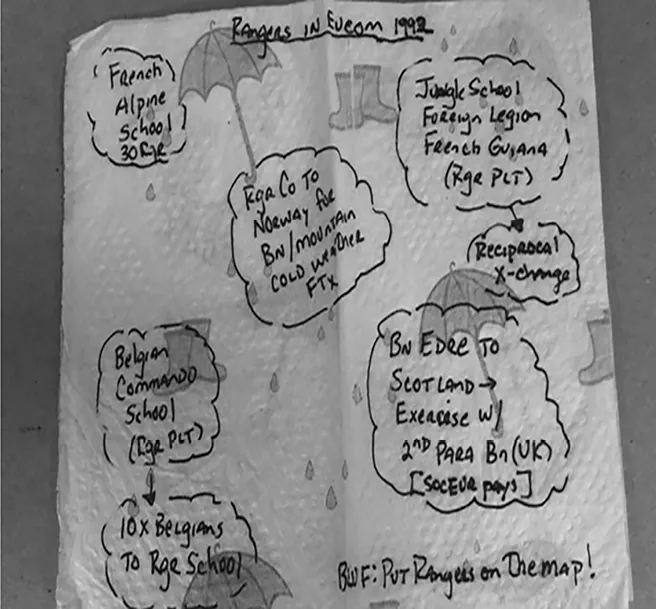 Rangers in Eucom 1992
French
Alpine
School
30 Rgr
Jungle School
Foreign Legion
French Guiana
(Rgr PLT)
Reciprocal
X-change
Rgr Co To
Norway for
Bn/Mountain
Cold Weather
FTX
Belgian
Commando
School
(Rgr PLT)
10x Belgians
To Rgr School
Bn EDRE To
Scotland →
Exercise w/
2ND Para Bn (UK)
[SOCEUR pays]
BWF: Put Rangers on The map!